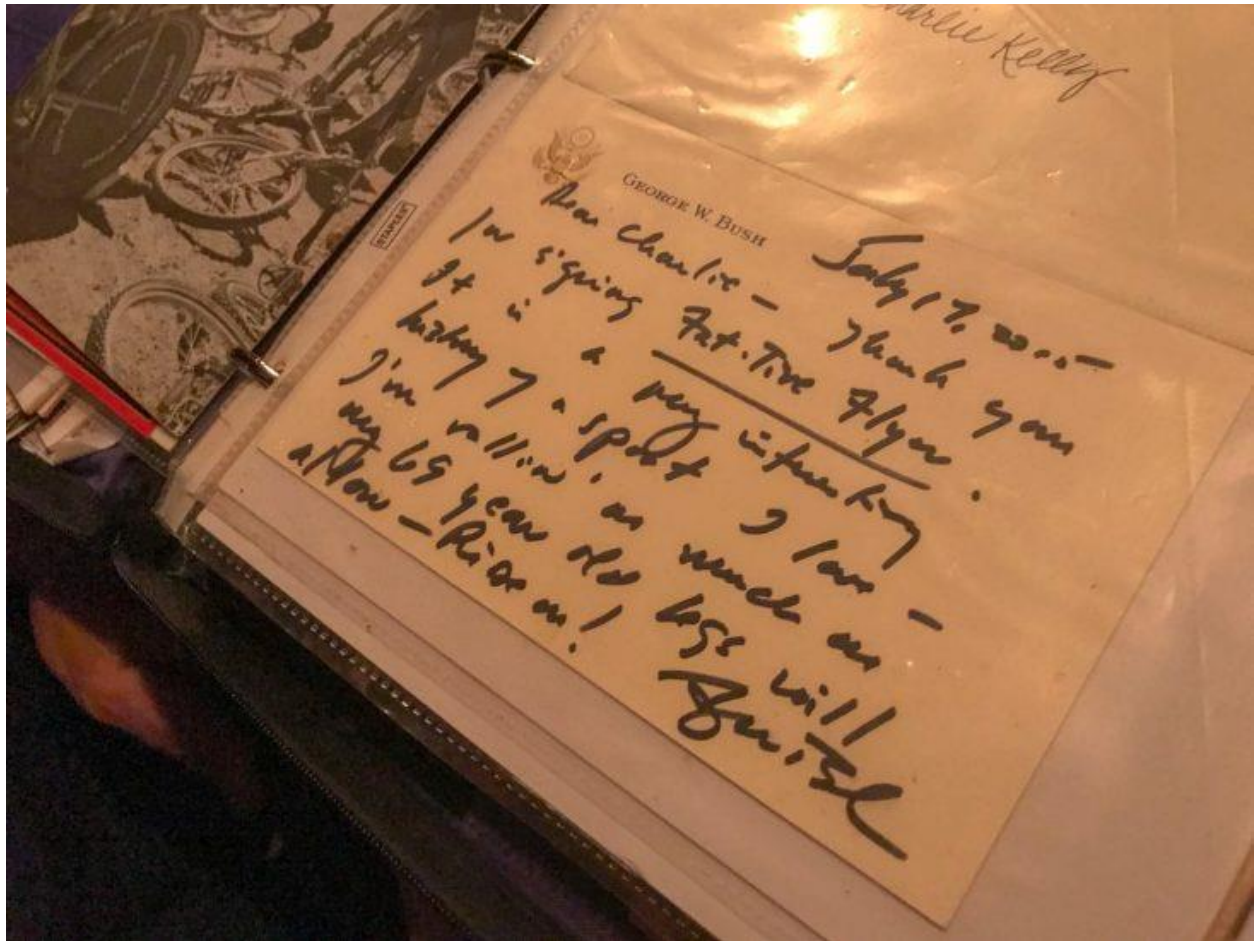 Charlie Kelly
GEORGE W. BUSH
July 17, 2015
Dear Charlie – Thank you
for signing Fat-Tire Flyer.
It is a very interesting
history of a sport I love –
I'm rollin' as much as
my 69 year old legs will
allow – Ride on!
STAPLES